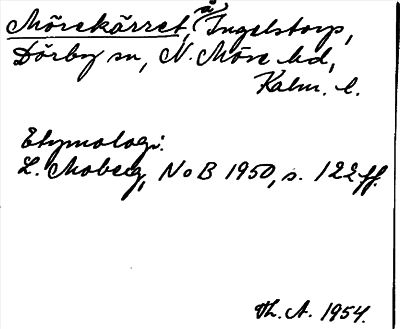 Mörekärret, å Ingelstorp,
Dörby sn, N. Möre hd,
Kalm. l.
Etymologi:
L. Moberg, NoB 1950, s. 122 ff.
Th. A. 1954.